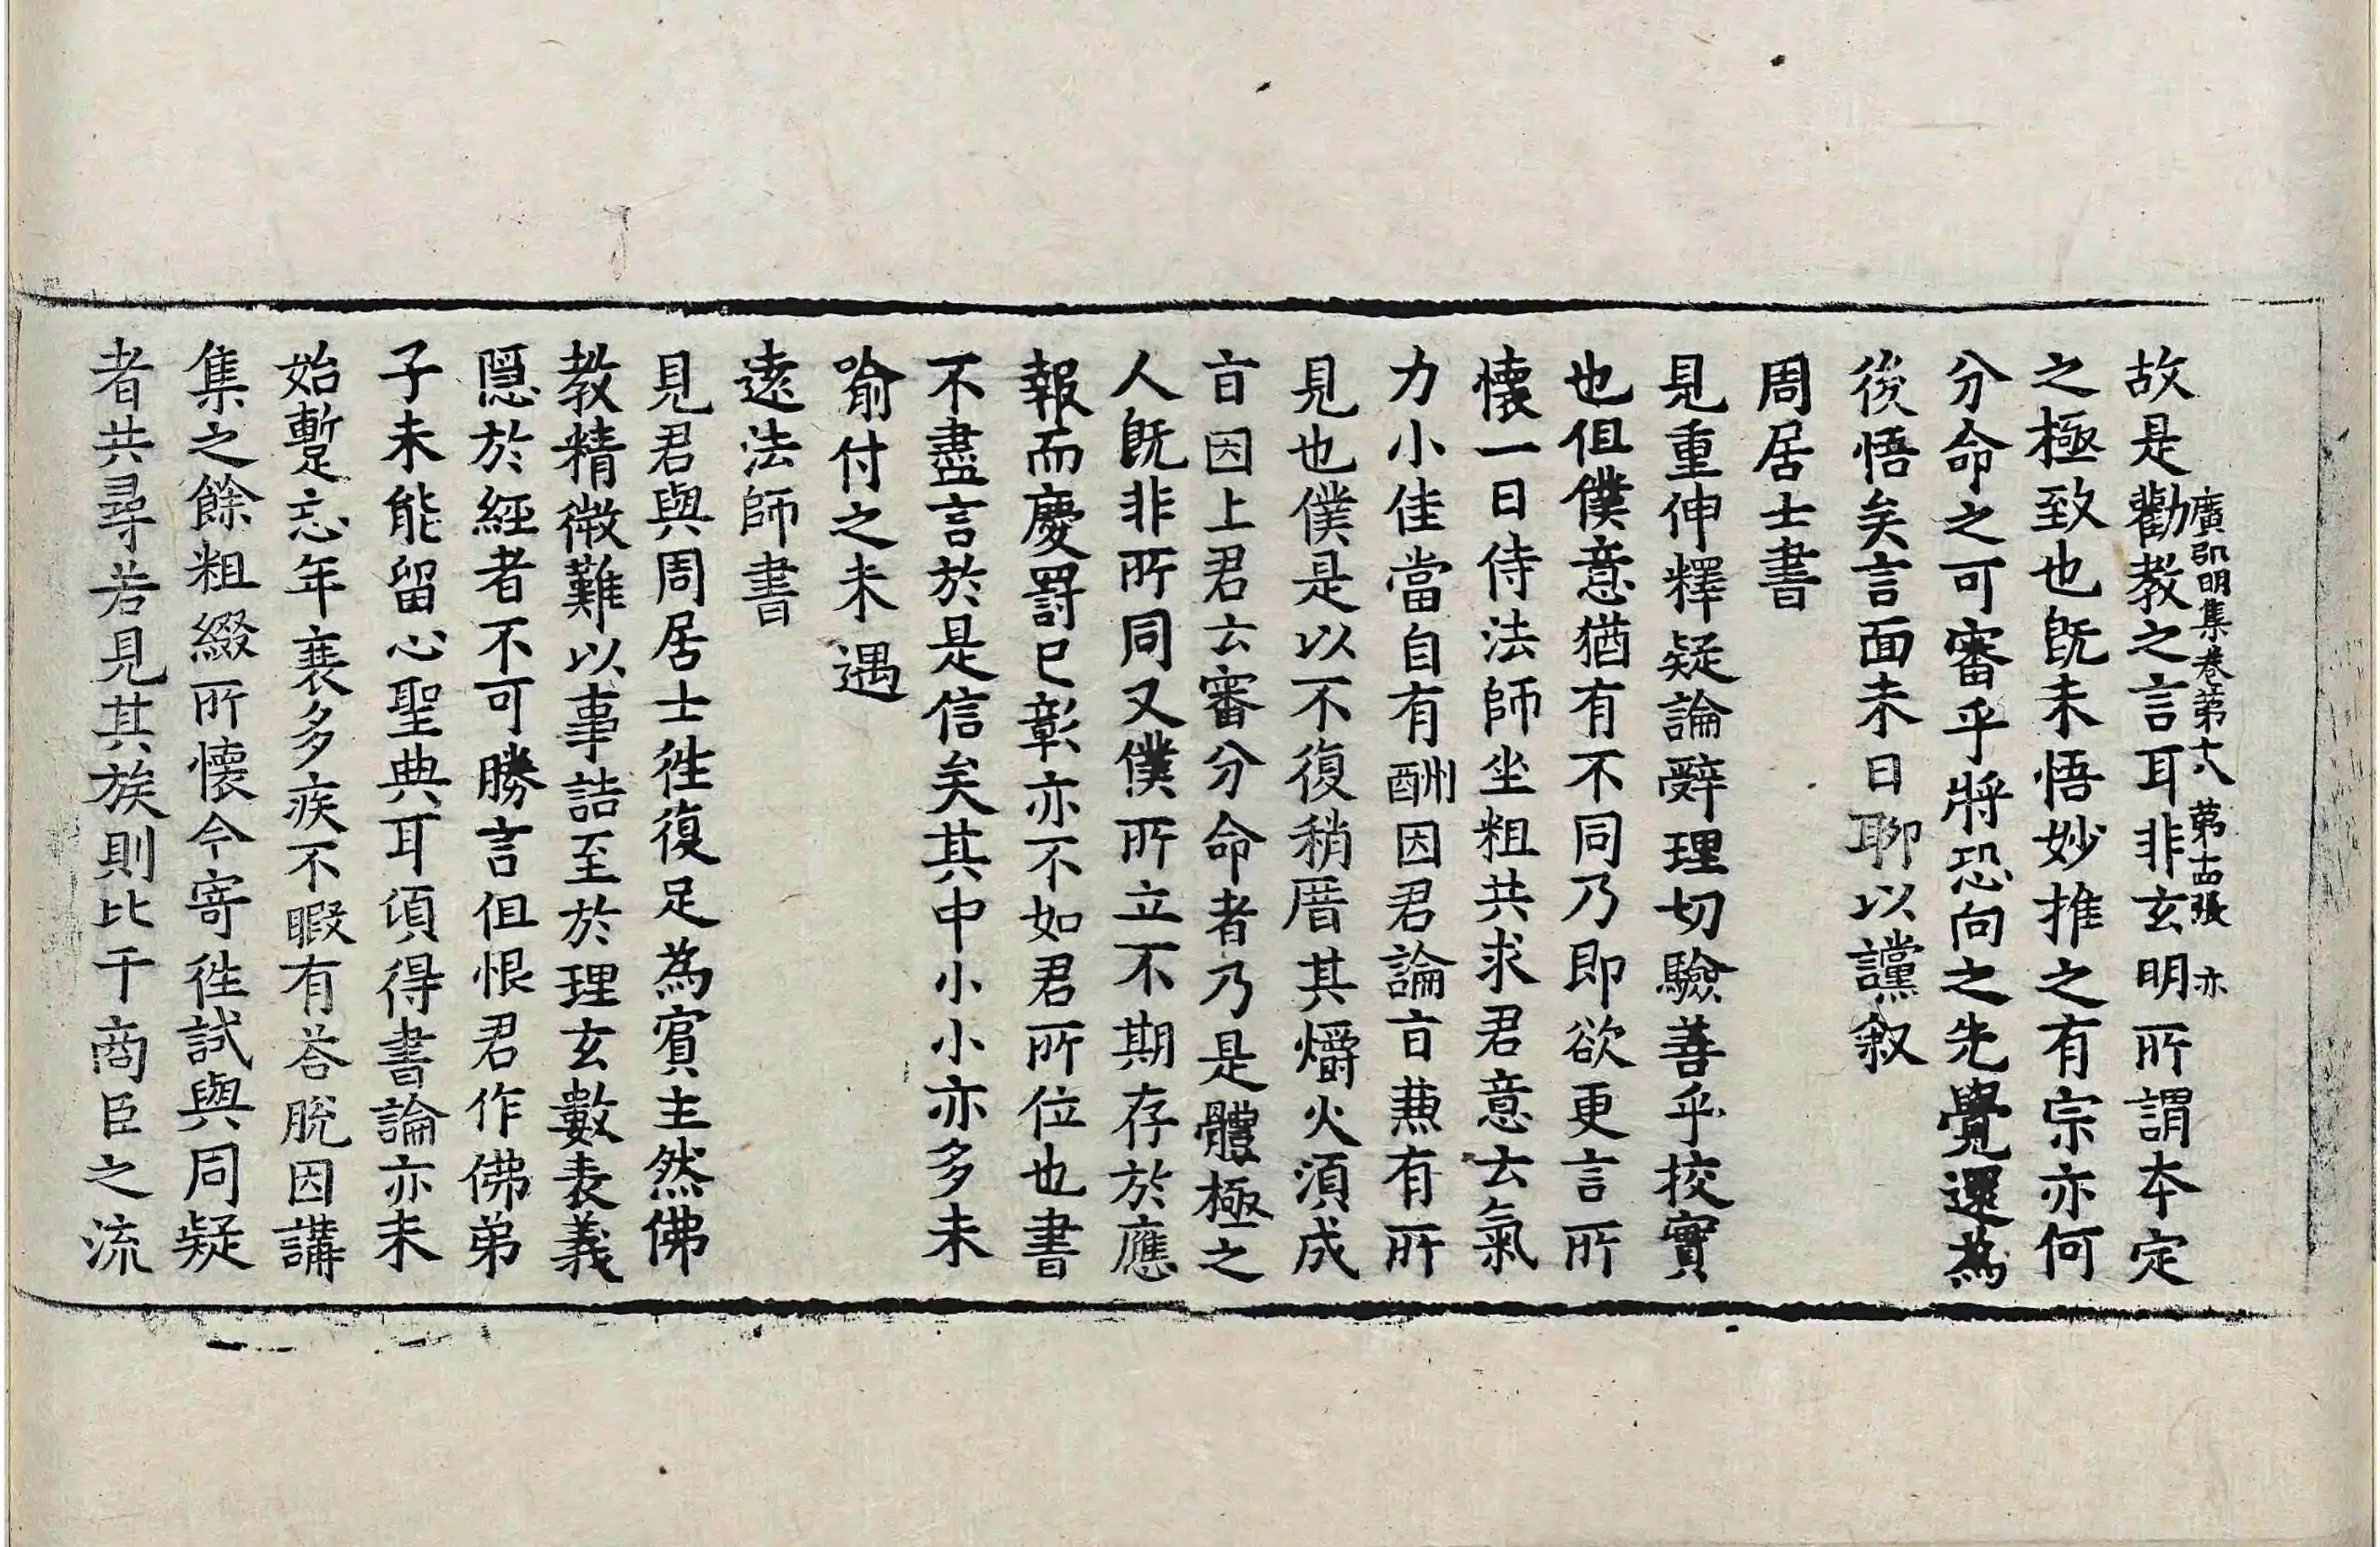 故是勸教之言耳非玄明所謂本定
廣弘明集卷第十八 第古張 亦
之極致也旣未悟妙推之有宗亦何
分命之可審乎將恐向之先覺還為
後悟矣言面未日聊以讜叙
周居士書
見重伸釋疑論辤理切驗善乎挍實
也但僕意猶有不同乃即欲更言所
懐一日侍法師坐粗共求君意去氣
力小佳當自有酬因君論㫖𠔥有所
見也僕是以不復稍厝其爝火須成
㫖因上君云審分命者乃是體極之
人旣非所同又僕所立不期存於應
報而慶罸已彰亦不如君所位也書
不盡言於是信矣其中小小亦多未
喻付之未遇
遠法師書
見君與周居士往復足為賔主然佛
教精微難以事詰至於理玄數表義
隠於經者不可勝言但恨君作佛弟
子未能留心聖典耳頃得書論亦未
始暫忘年衰多疾不暇有荅脫因講
集之餘粗綴所懐今寄往試與同疑
者共尋若見其族則比干商臣之流